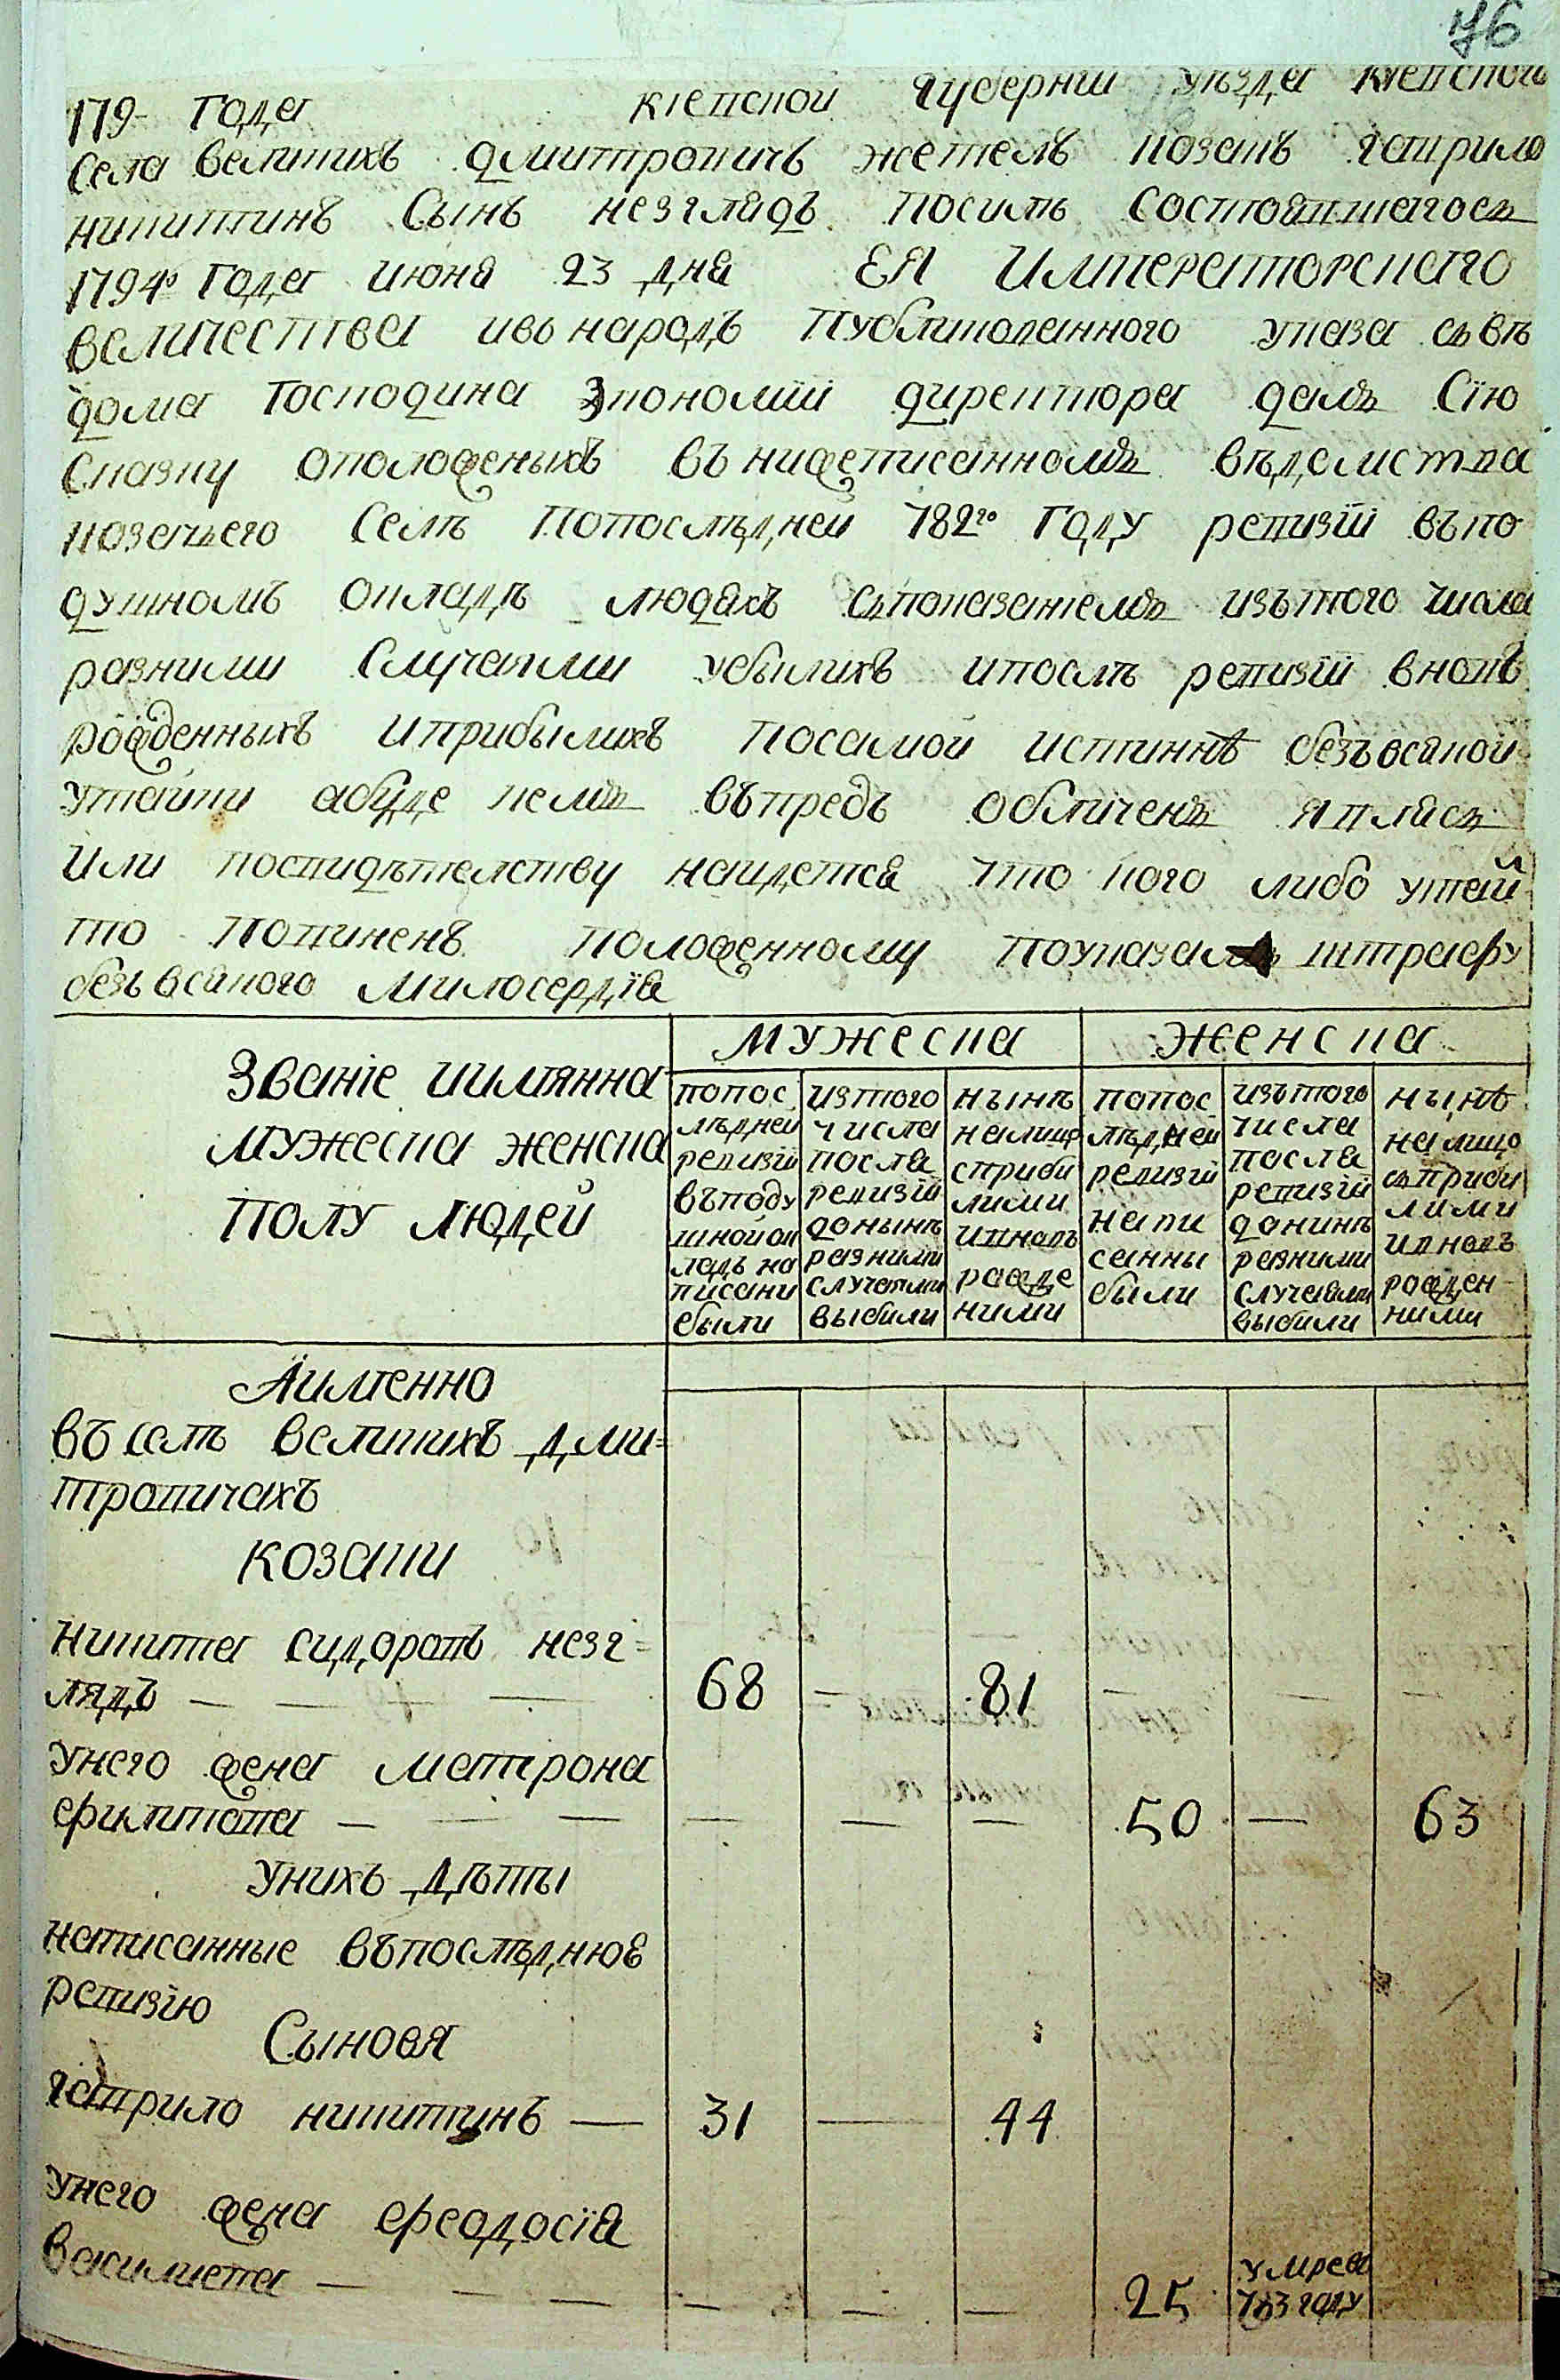 76
179- Года кіевской губерніи уѣзда кіевского
села великихъ дмитровичъ жетель козакъ гаврило
никитинъ сынъ незглядъ посилѣ состоявшагось
1794го Года июня 23 дня ЕЯ Императорскаго
величества ивънародъ публикованного указа съвѣ
дома Господина Экономіи директора далъ Сію
сказку оположеныхъ въ нижеписанномъ вѣдомства
козачьего селѣ попослѣдней 782го Году ревизіи въпо
душномъ окладѣ людяхъ спокazаніемъ изътого числа
разними случаями убылихъ ипослѣ ревизіи вновь
рожденныхъ иприбылихъ посамой истиннѣ безъвсякой
утайки абуде кемъ въпредъ обличенъ явлюсь
или посвидѣтелству найдется что кого либо утаил
то повиненъ положенному поуказамъ штрафу
безъвсякого милосердія
Званіе иимянна мужеска женска полу людей
мужеска
женска
попос лѣдней ревизіи въподу шной ок ладъ на писани были
изтого числа посля ревизіи донынѣ разними случаями выбили
нынѣ налицо сприби лими ивновь рожде ними
попос лѣдней ревизіи напи санны были
изътого числа посля ревизіи донинѣ разними случаями выбили
нынѣ налицо съприби лими ивновъ рожден ними
Аименно
въ селѣ великихъ дми=
тровичахъ
козаки
никита сидоровъ незг=
лядъ — — — 68 — 81 — — —
унего жена матрона
филипова — — — — — — 50 — 63
унихъ дѣти
написанные въпослѣднюе
ревизію
Сыновя
гаврило никитинъ — 31 — 44
унего жена феодосія
василиева — — — — — — 25 умреа 783 году